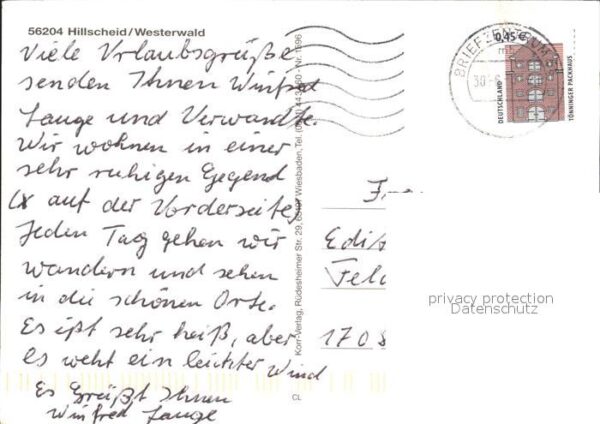 56204 Hillscheid/Westerwald
Viele Urlaubsgrüße
senden Ihnen Winfred
Lange und Verwandte.
Wir wohnen in einer
sehr ruhigen Gegend
(x auf der Vorderseite)
Jeden Tag gehen wir
wandern und sehen
in die schönen Orte.
Es ißt sehr heiß, aber
es weht ein leichter Wind
Es Greißt Ihnen
Winfred Lange
Korr-Verlag, Rüdesheimer Str. 29, Wiesbaden, Tel.
Nr. 1596
CL
BRIEFZENTRUM
0,45 €
DEUTSCHLAND
TÖNNINGER PACKHAUS
Edit
Feld
privacy protection
Datenschutz